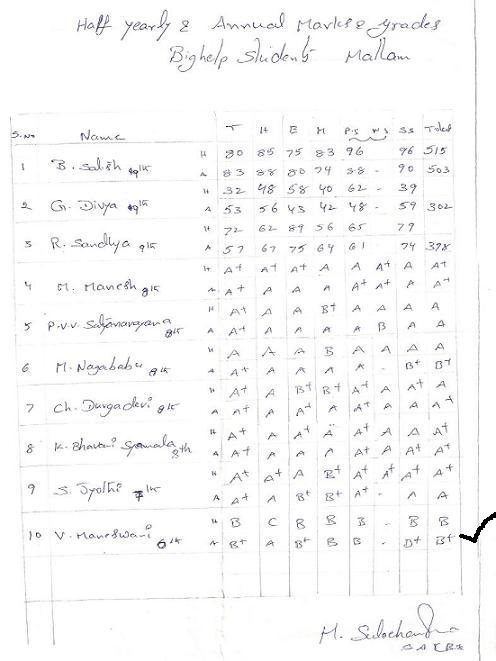 Half yearly & Annual Marks & grades
Bighelp Students Mallam
S.No Name T H E M P.S N.S SS Total
1 B. Satish 9th H 80 85 75 83 96 96 515
A 83 88 80 74 88 - 90 503
H 32 48 58 40 62 - 39
2 G. Divya 9th A 53 56 43 42 48 - 59 302
H 72 62 89 56 65 79
3 R. Sandhya 9th A 57 67 75 64 61 74 398
H A+ A+ A+ A A A+ A A+
4 M. Manesh 8th A A+ A A A A+ A+ A+ A+
H A+ A A B+ A A A A
5 P.V.V. Satyanarayana 8th A A+ A A A A B A A
H A A A B A A A A
6 M. Nagababu 8th A A+ A A A A - B+ B+
H A+ A B+ B+ A A A+ A
7 Ch. Durgadevi 8th A A+ A A+ A A+ A A A+
H A+ A A+ A A+ A A A+
8 K. Bhavani Syamala 8th A A+ A A A A+ A A+ A+
H A+ A+ A B+ A+ A A+ A+
9 S. Jyothi 7th A A+ A B+ B+ A+ - A A
H B C B B B - B B
10 V. Maneswari 6th A B+ A B+ B B - B+ B+
M. Sulochandra